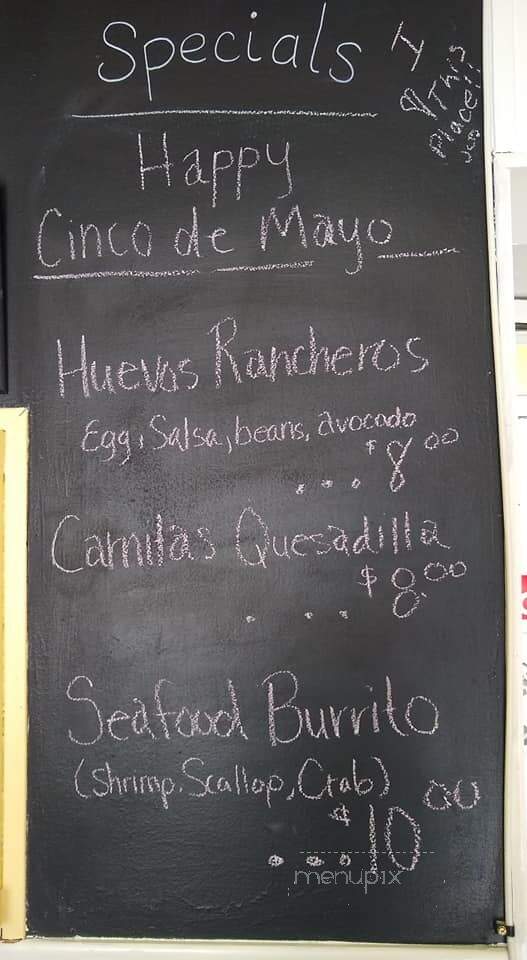 Specials
I
This
Place!!
Happy
Cinco de Mayo
Huevos Rancheros
Egg, Salsa, beans, avocado
... $8.00
Carnitas Quesadilla
... $8.00
Seafood Burrito
(Shrimp, Scallop, Crab)
... $10.00
menupix